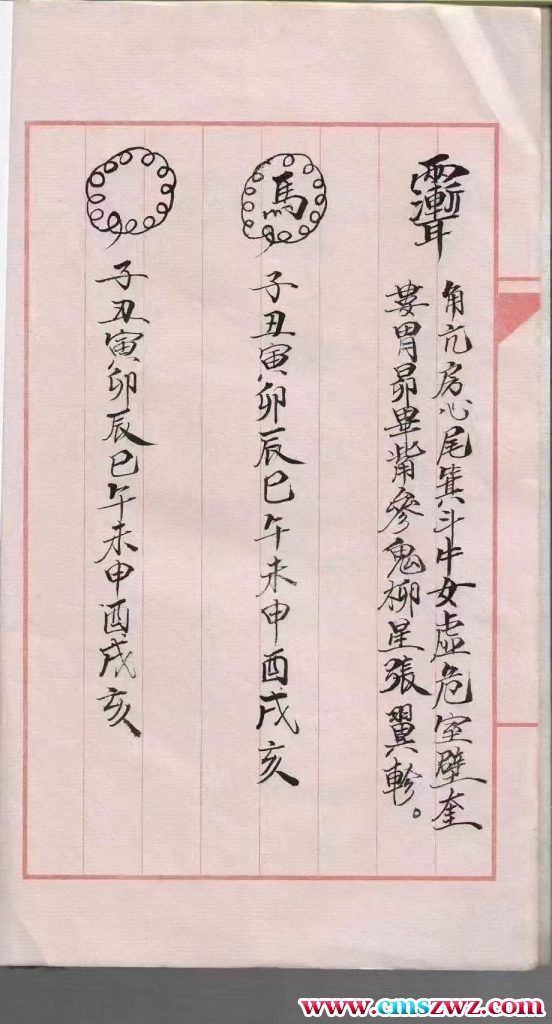 角亢房心尾箕斗牛女虛危室壁奎
婁胃昴畢觜參鬼柳星張翼軫。
馬
子丑寅卯辰巳午未申酉戌亥
子丑寅卯辰巳午未申酉戌亥
www.cmszwz.com